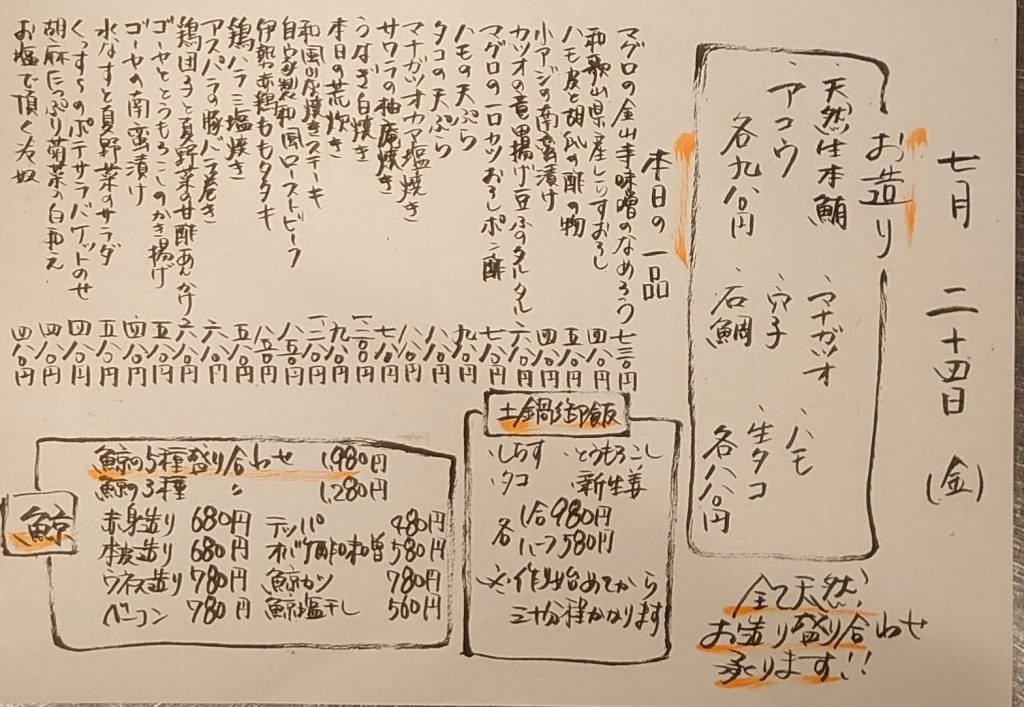 七月 二十四日 (金)
お造り
天然生本鮪 マナガツオ ハモ
アコウ 穴子 生タコ
各九八〇円 石鯛 各八八〇円
全て天然
お造り盛り合わせ
承ります!!
本日の一品
マグロの金山寺味噌のなめろう 七三〇円
和歌山県産しらすおろし 四八〇円
ハモ皮と胡瓜の酢の物 五八〇円
小アジの南蛮漬け 四八〇円
カツオの竜田揚げ豆ふのタルタル 六八〇円
マグロの一口カツおろしポン酢 七八〇円
ハモの天ぷら 九八〇円
タコの天ぷら 八八〇円
マナガツオカマ塩焼き 八八〇円
サワラの柚庵焼き 七八〇円
うなぎ白焼き 一二八〇円
本日の荒炊き 九八〇円
和風山椒焼きステーキ 一二八〇円
自家製和風ローストビーフ 八八〇円
伊勢赤鶏ももタタキ 八五〇円
鶏ハラミ塩焼き 五八〇円
アスパラの豚バラ巻き 六八〇円
鶏団子と夏野菜の甘酢あんかけ 六八〇円
ゴーヤととうもろこしのかき揚げ 五八〇円
ゴーヤの南蛮漬け 四八〇円
水なすと夏野菜のサラダ 五八〇円
くっすらのポテサラバケットのせ 四八〇円
胡麻たっぷり菊菜の白和え 四八〇円
お塩で頂く冷奴 四八〇円
土鍋御飯
・しらす ・とうもろこし
・タコ ・新生姜
各 1合980円
ハーフ580円
※作り始めてから
三十分程かかります
鯨
鯨の5種盛り合わせ 1,980円
鯨の3種 〃 1,280円
赤身造り 680円 テッパ 480円
本皮造り 680円 オバケ酢味噌 580円
ウネス造り 780円 鯨カツ 780円
ベーコン 780円 鯨塩干し 560円